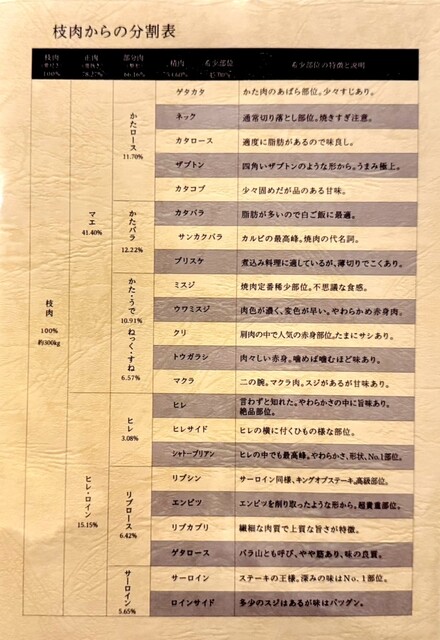 枝肉からの分割表
枝肉
100%
正肉
部分肉
精肉 希少部位
希少部位の特徴と説明
枝肉
100%
約500kg
マエ
41.40%
かたロース
11.70%
ゲタカタ かた肉のあばら部位。少々すじあり。
ネック 通常切り落とし部位。焼きすぎ注意。
カタロース 適度に脂肪があるので味良し。
ザブトン 四角いザブトンのような形から。うまみ極上。
カタコブ 少々固めだが品のある甘味。
かたバラ
12.22%
カタバラ 脂肪が多いので白ご飯に最適。
サンカクバラ カルビの最高峰。焼肉の代名詞。
ブリスケ 煮込み料理に適しているが、薄切りでこくあり。
かた・うで
10.91%
ミスジ 焼肉定番稀少部位。不思議な食感。
ウワミスジ 肉色が濃く、変色が早い。やわらかめ赤身肉。
クリ 肩肉の中で人気の赤身部位。たまにサシあり。
ねっく・すね
6.57%
トウガラシ 肉々しい赤身。噛めば噛むほど味あり。
マクラ 二の腕。マクラ肉。スジがあるが甘味あり。
ヒレ・ロイン
15.15%
ヒレ
3.08%
ヒレ 言わずと知れた。やわらかさの中に旨味あり。
絶品部位。
ヒレサイド ヒレの横に付くひもの様な部位。
シャトーブリアン ヒレの中でも最高峰。やわらかさ、形状、No.1部位。
リブロース
6.42%
リブシン サーロイン同様、キングオブステーキ。高級部位。
エンピツ エンピツを削り取ったような形から。超貴重部位。
リブカブリ 繊細な肉質で上質な旨さが特徴。
ゲタロース バラ山とも呼び、やや筋あり、味の良質。
サーロイン
5.65%
サーロイン ステーキの王様。深みの味はNo.1部位。
ロインサイド 多少のスジはあるが味はバツグン。